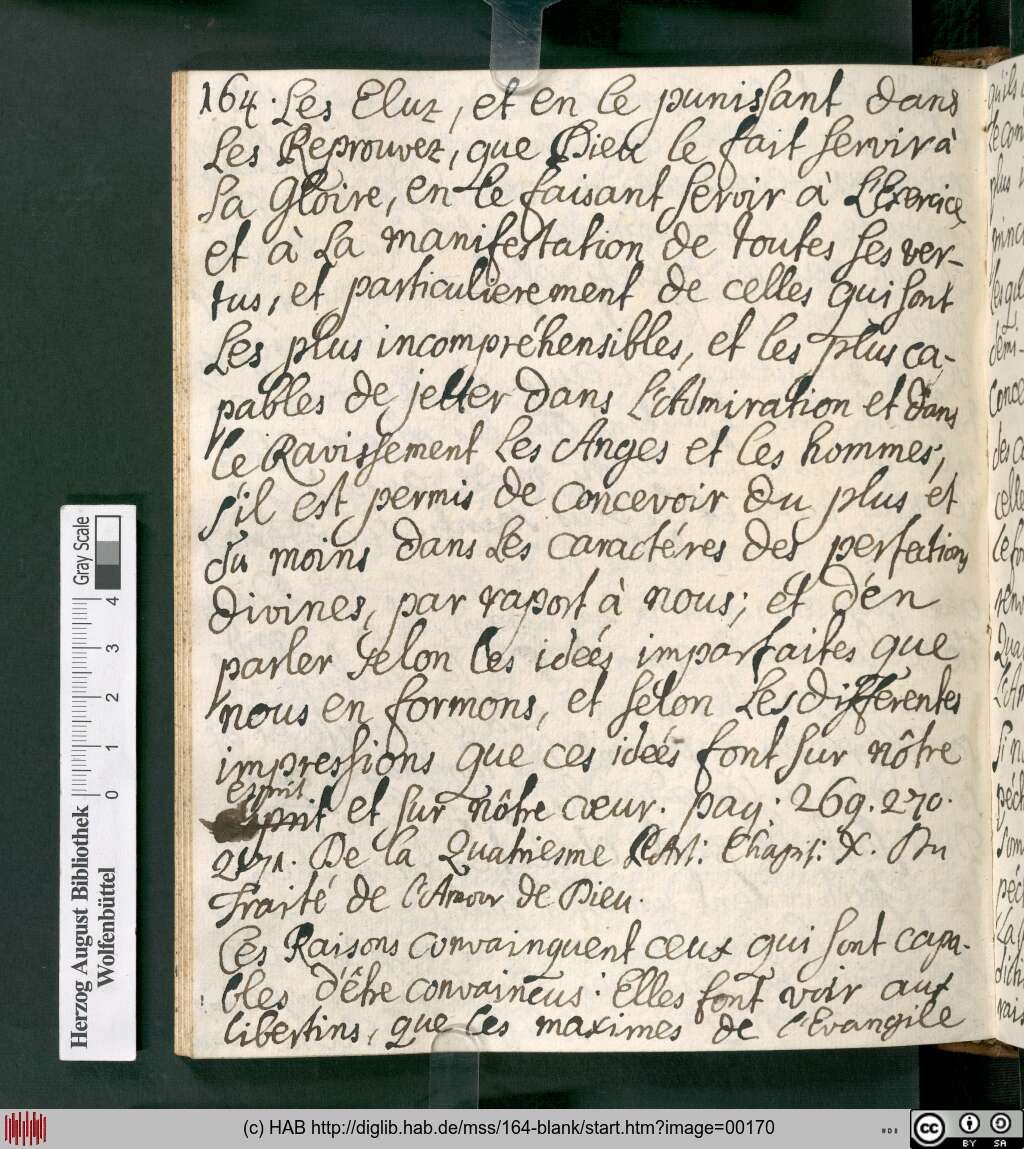 164. Les Eluz, et en le punissant dans
Les Reprouvez, que Dieu le fait servir à
sa Gloire, en le faisant servir à L'Exercice
et à La manifestation de toutes ses ver-
tus, et particulierement de celles qui sont
Les plus incompréhensibles, et les plus ca-
pables de jetter dans L'Admiration et dans
le Ravissement Les Anges et les hommes,
s'il est permis de concevoir du plus et
du moins dans Les caractéres des perfections
divines, par raport à nous; et d'en
parler selon les ideés imparfaites que
nous en formons, et selon Les différentes
impressions que ces ideés font sur nôtre
esprit
et sur nôtre cœur. pag: 269. 270.
271. De la Quatriesme Part: Chapit: X. Du
Traité de l'Amour de Dieu.
Ces Raisons convainquent ceux qui sont capa-
bles d'être convaincus: Elles font voir aux
libertins, que les maximes de l'Evangile
Herzog August Bibliothek
Wolfenbüttel
Gray Scale
0 1 2 3 4
(c) HAB http://diglib.hab.de/mss/164-blank/start.htm?image=00170
cc BY SA